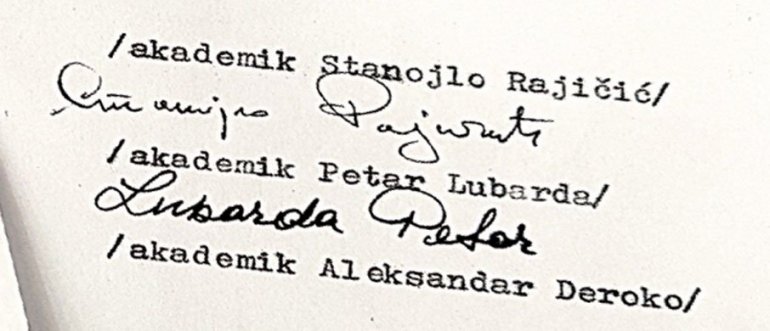 /akademik Stanojlo Rajičić/
Станојло Рајичић
/akademik Petar Lubarda/
Lubarda Petar
/akademik Aleksandar Deroko/